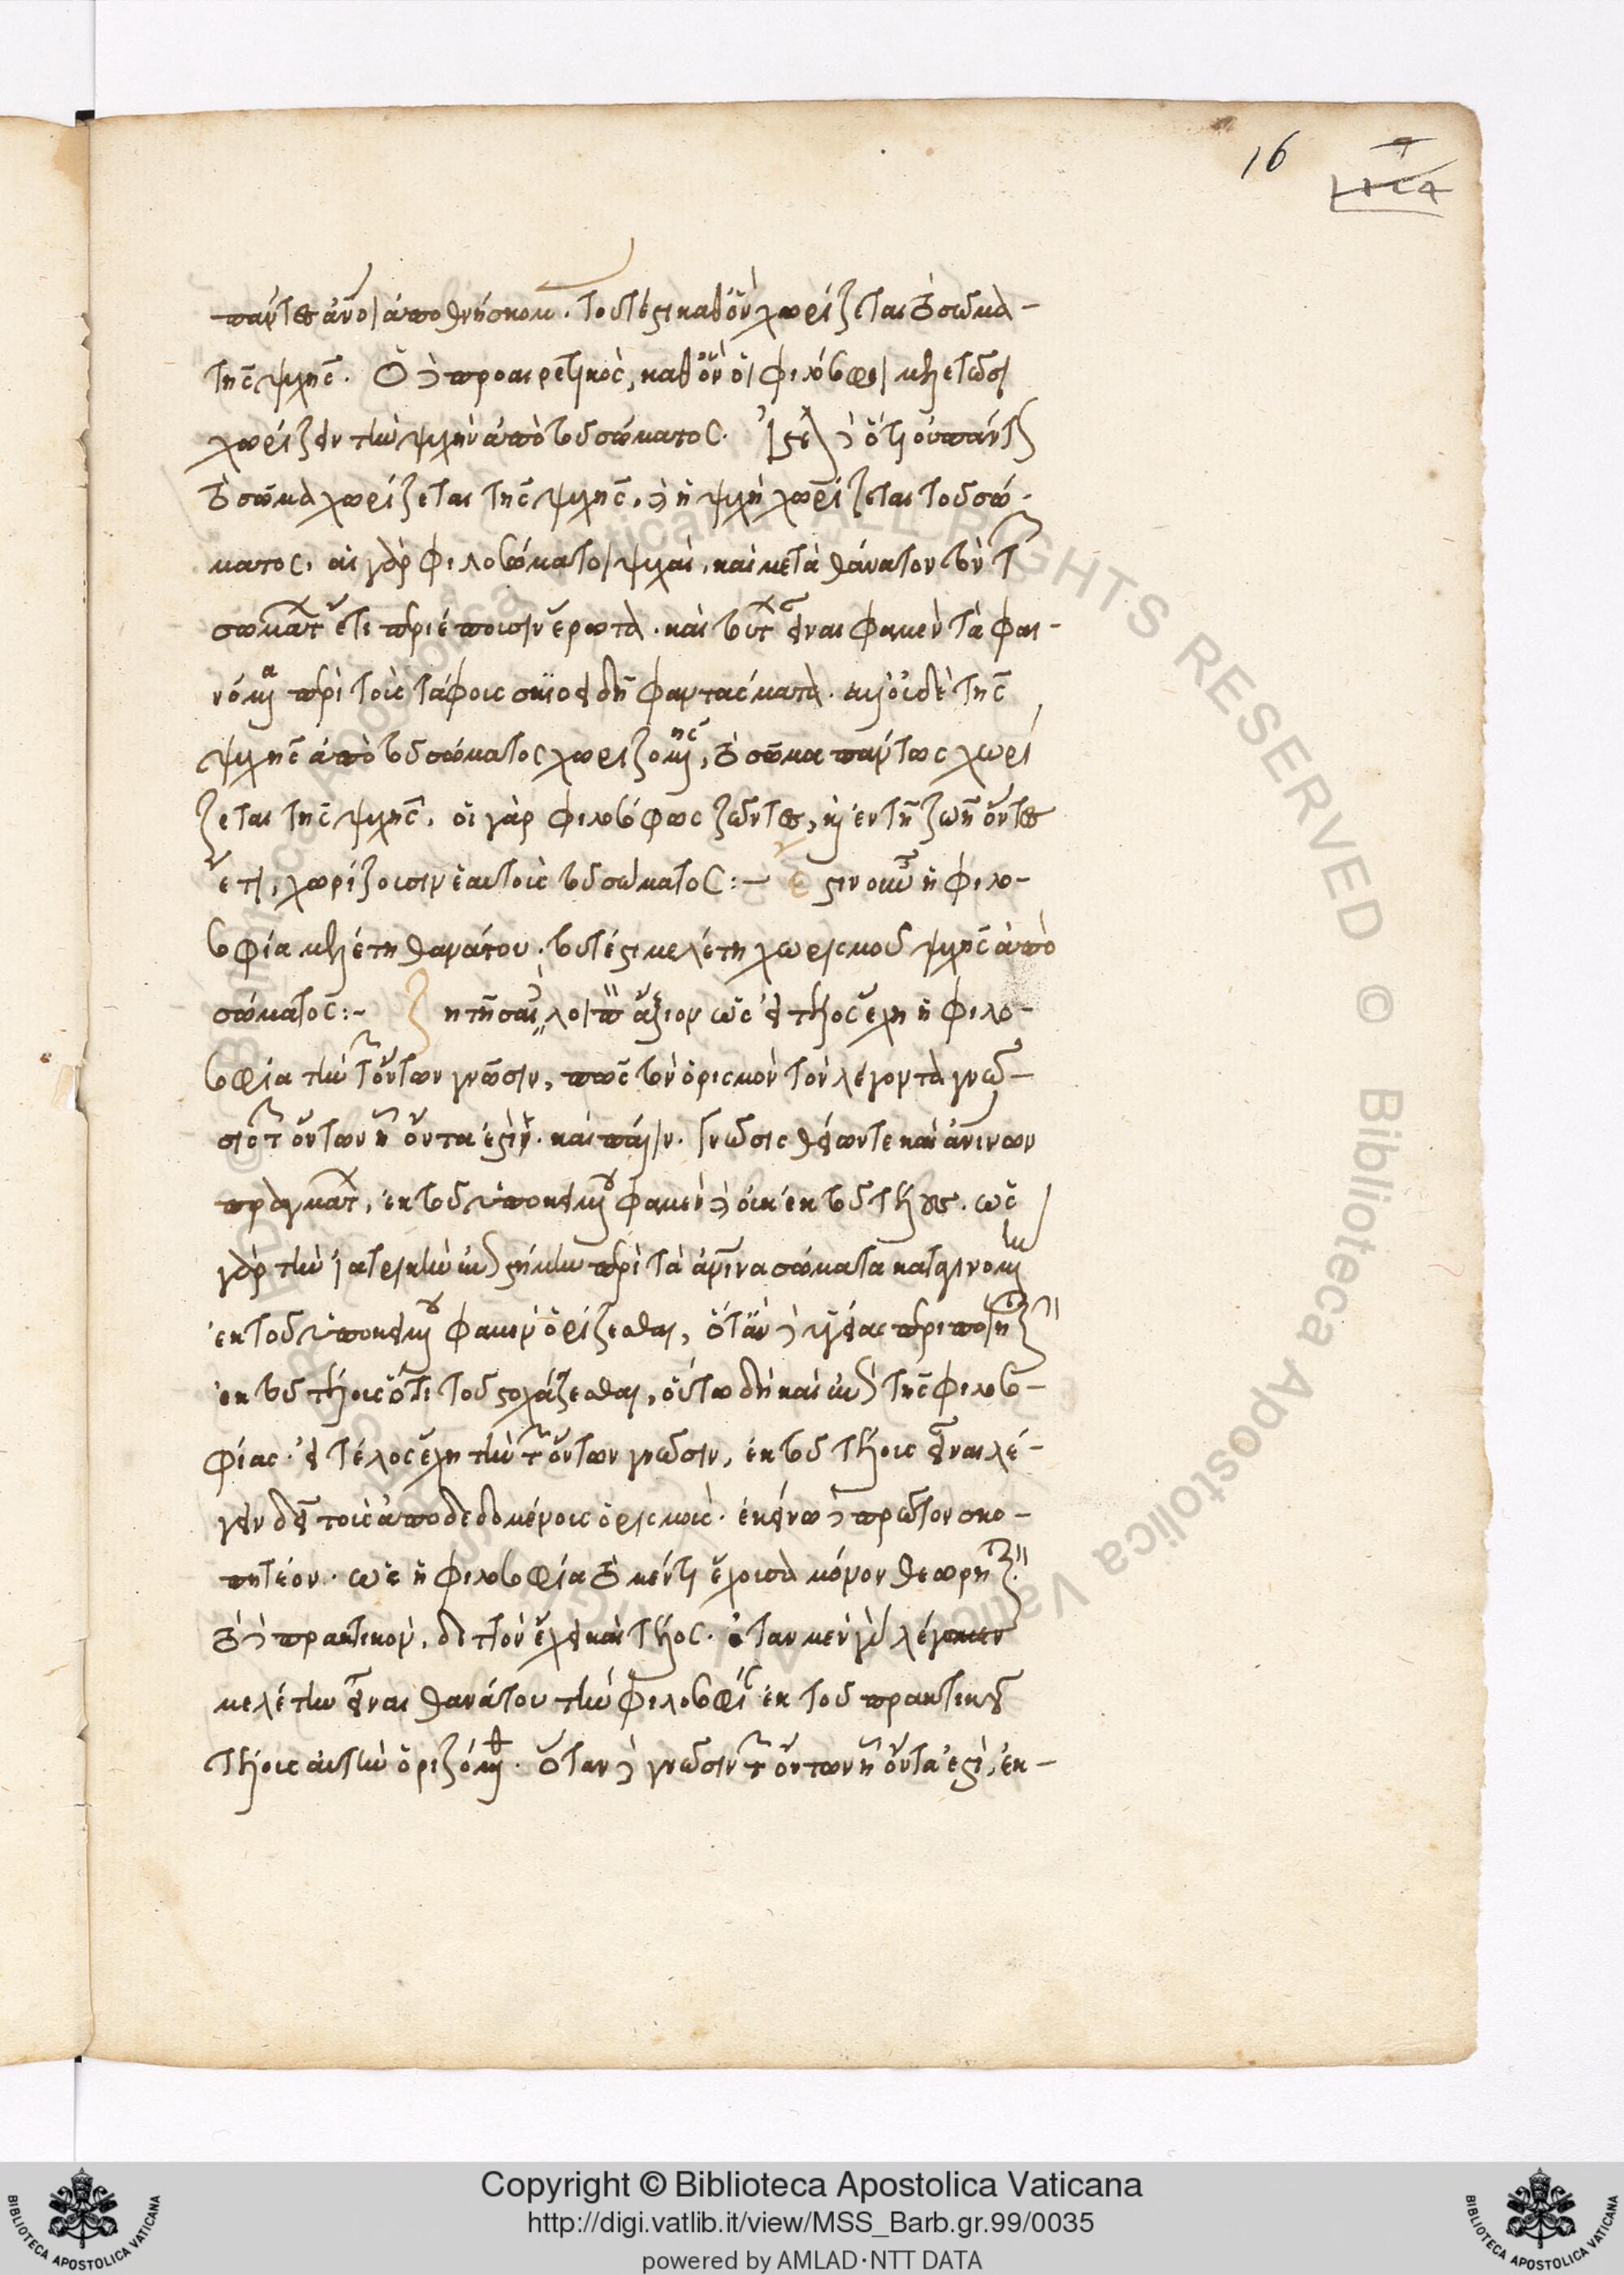 16
πάντες ἄνοι ἀποθνήσκομ. τουτέστι καθ' ὃν χωρίζεται τὸ σῶμα
τῆς ψυχῆς. Ὁ δὲ προαιρετικὸς, καθ' ὃν οἱ φιλόσοφοι μελετῶσι
χωρίζειν τὴν ψυχὴν ἀπὸ τοῦ σώματος. Ἰστέον δὲ ὅτι οὐ πάντως
τὸ σῶμα χωρίζεται τῆς ψυχῆς, δὲ ἡ ψυχὴ χωρίζεται τοῦ σώ-
ματος. αἱ γὰρ φιλοσώματοι ψυχαὶ, καὶ μετὰ θάνατον τὸν τῶν
σωμάτων ἔτι περιέπουσιν ἔρωτα. καὶ τοῦτ εἶναι φαμὲν τὰ φαι-
νόμενα περὶ τοῖς τάφοις σκιοειδῆ φαντάσματα. οὐδὲ τῆς
ψυχῆς ἀπὸ τοῦ σώματος χωριζομένης, τὸ σῶμα πάντως χωρί
ζεται τῆς ψυχῆς. οἱ γὰρ φιλοσόφως ζῶντες, καὶ ἐν τῇ ζωῇ ὄντες
ἔτι, χωρίζουσιν ἑαυτοὺς τοῦ σώματος:— Ἔστιν οὖν ἡ φιλο-
σοφία μελέτη θανάτου. τουτέστι μελέτη χωρισμοῦ ψυχῆς ἀπὸ
σώματος:— Ζητῆσαι δὲ λοιπὸν ἄξιον ὡς εἰ τέλος ἔχει ἡ φιλο-
σοφία τὴν τῶν ὄντων γνῶσιν, πῶς τὸν ὁρισμὸν τὸν λέγοντα γνῶ-
σις τῶν ὄντων ᾗ ὄντα ἐστίν. καὶ πάλιν. Γνῶσις θείων τε καὶ ἀνίνων
πραγμάτων, ἐκ τοῦ ὑποκειμένου φαμὲν δὲ οὐκ ἐκ τοῦ τέλους. ὡς
γὰρ τὴν ἰατρικὴν ἐπιστήμην περὶ τὰ ἀνινα σώματα καταγινομένην
ἐκ τοῦ ὑποκειμένου φαμὲν ὁρίζεσθαι, ὅταν δὲ ὑγείας περιποιητικὴν
ἐκ τοῦ τέλους ὅτι τοῦ στοχάζεσθαι, οὕτω δὴ καὶ ἐπὶ τῆς φιλοσο-
φίας. εἰ τέλος ἔχει τὴν τῶν ὄντων γνῶσιν, ἐκ τοῦ τέλους εἶναι λέ-
γειν δεῖ τοὺς ἀποδεδομένους ὁρισμοὺς. ἐκείνῳ δὲ πρῶτον σκο-
πητέον. ὡς ἡ φιλοσοφία τὸ μέντοι ἔχουσα μόνον θεωρητικόν
τὸ δὲ πρακτικὸν, διττὸν ἔχει καὶ τέλος. ὅταν μὲν γὰρ λέγομεν
μελέτην εἶναι θανάτου τὴν φιλοσοφίαν ἐκ τοῦ πρακτικοῦ
τέλους αὐτὴν ὁριζόμεθα. Ὅταν δὲ γνῶσιν τῶν ὄντων ᾗ ὄντα ἐστὶ, ἐκ-
Copyright © Biblioteca Apostolica Vaticana
http://digi.vatlib.it/view/MSS_Barb.gr.99/0035
powered by AMLAD·NTT DATA